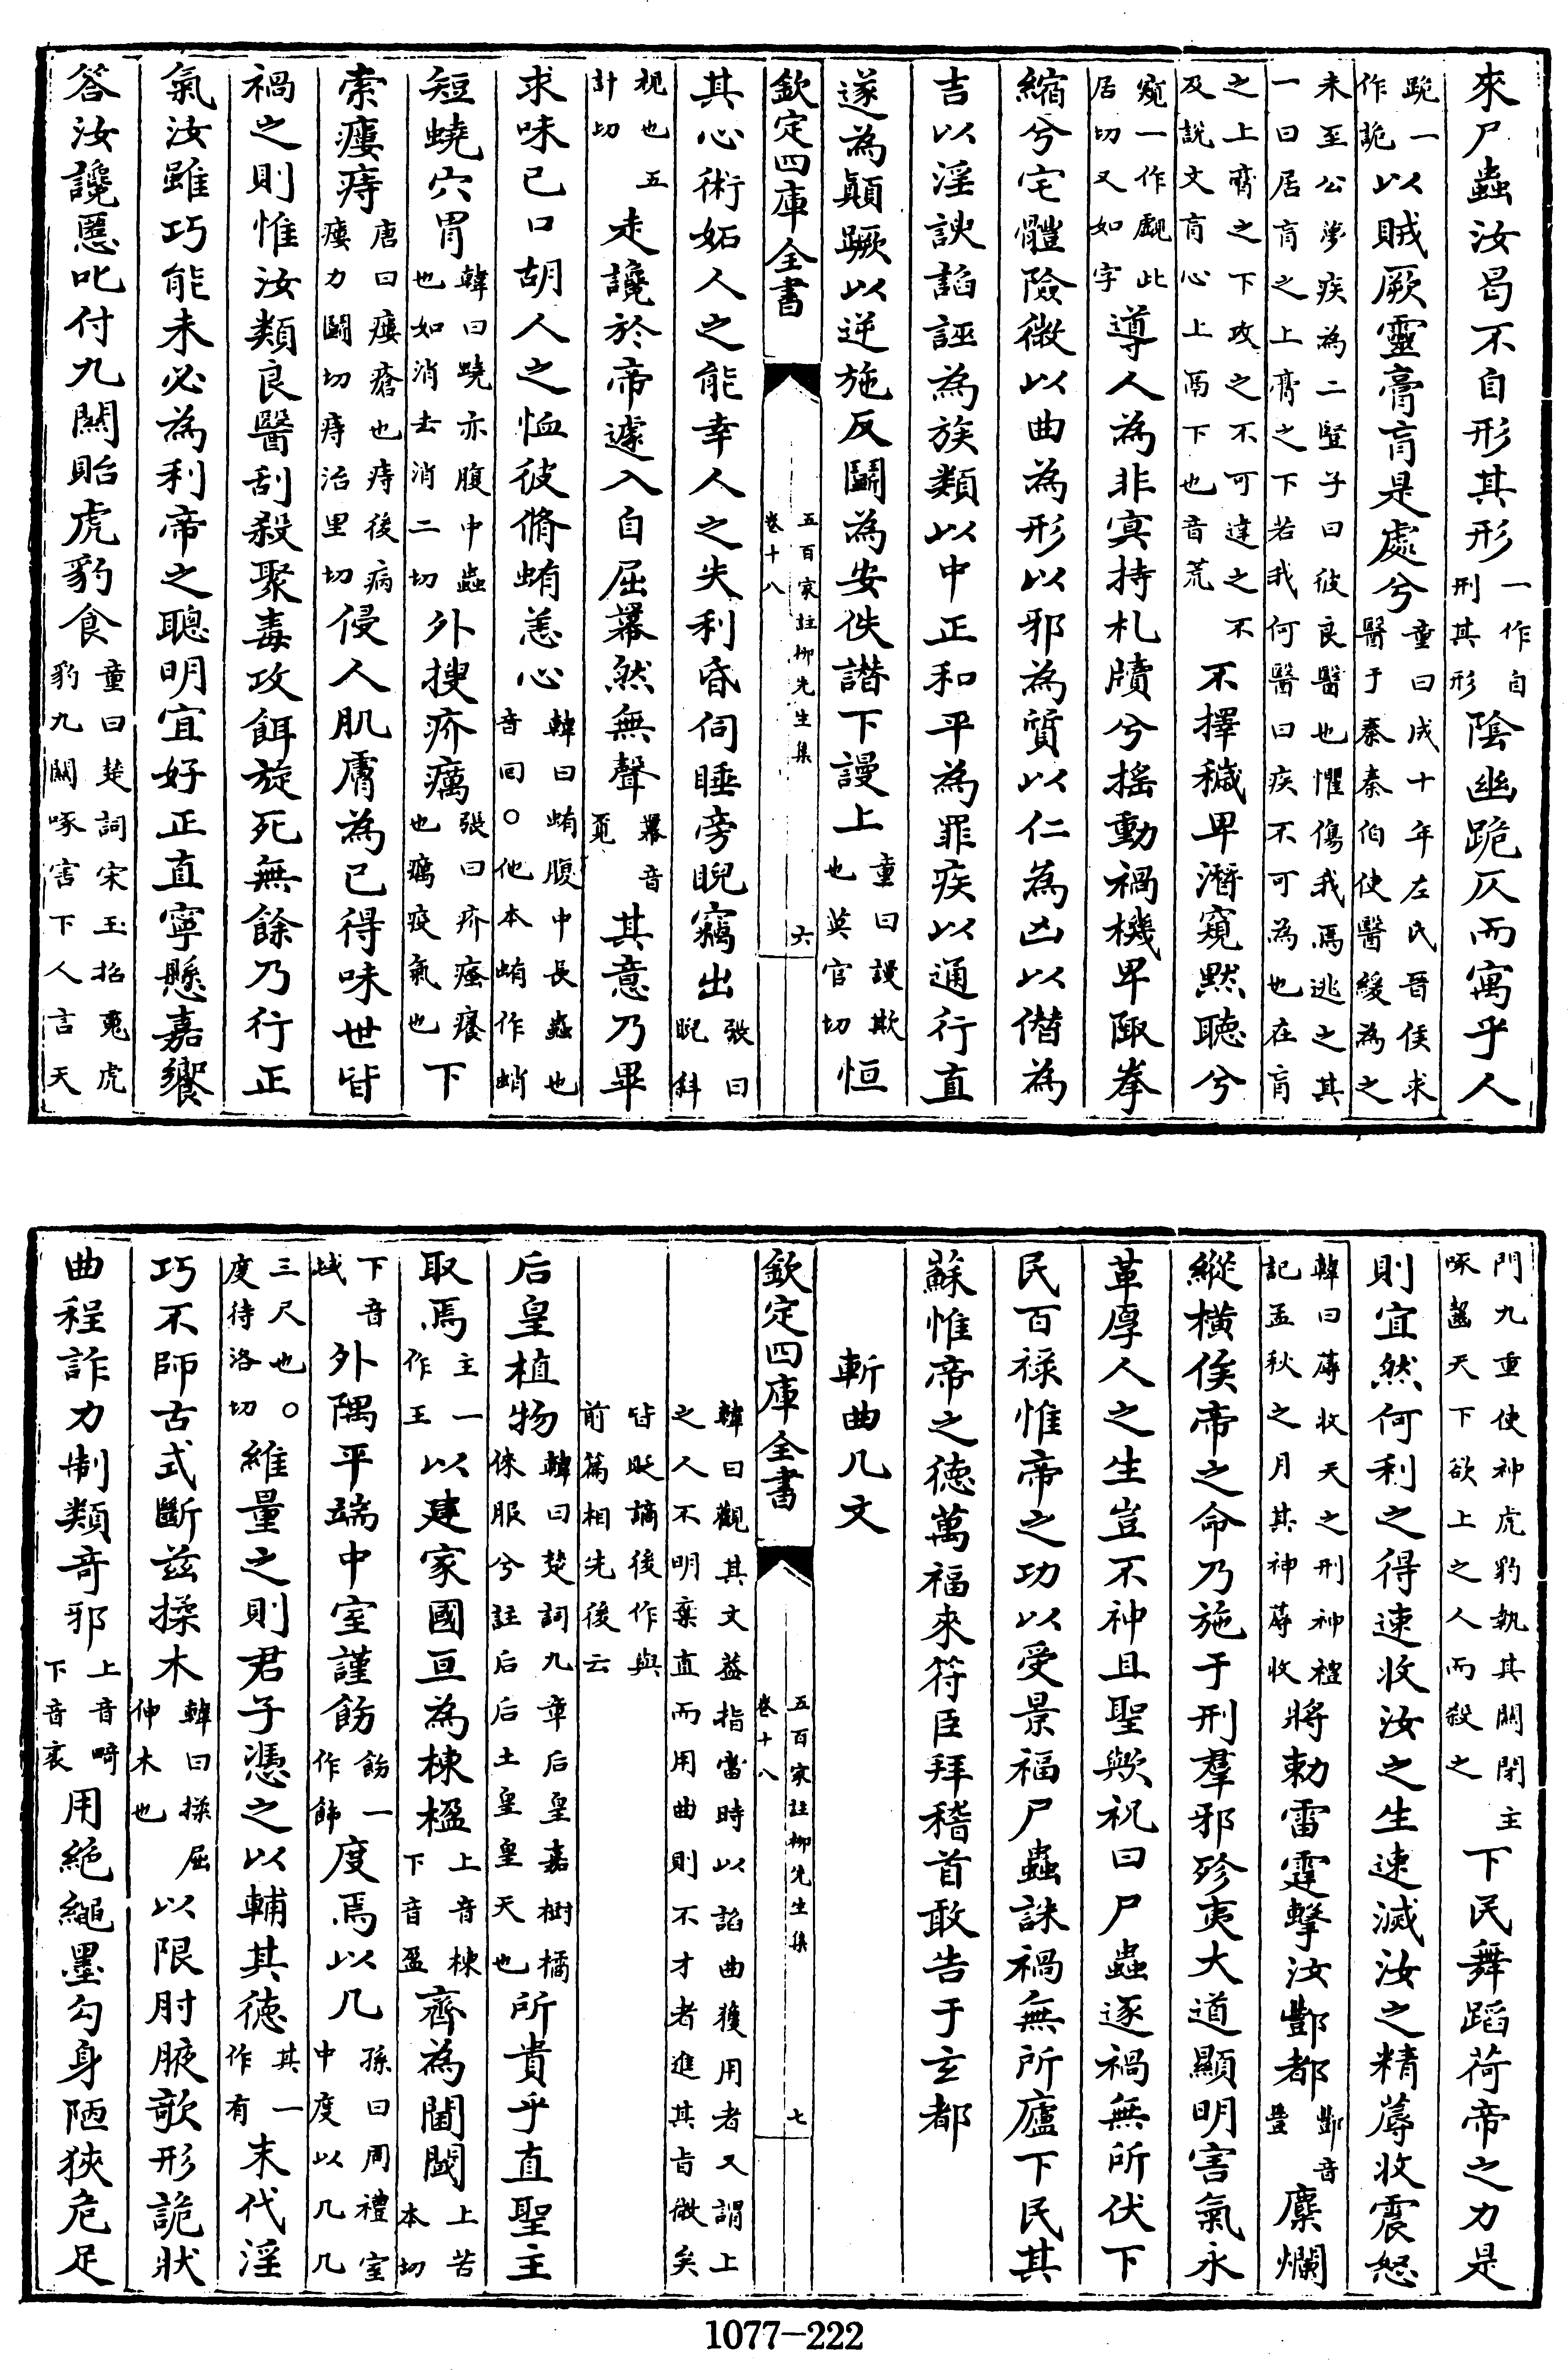 來尸蟲汝曷不自形其形一作自刑其形陰幽跪仄而寓乎人
跪一作詭以賊厥靈膏肓是處兮童曰成十年左氏晉侯求醫于秦秦伯使醫緩為之
未至公夢疾為二豎子曰彼良醫也懼傷我焉逃之其一曰居肓之上膏之下若我何醫曰疾不可為也在肓
之上膏之下攻之不可達之不及說文肓心上鬲下也音荒不擇穢卑潛窺默聽兮
窺一作覰此居切又如字導人為非冥持札牘兮搖動禍機卑陬拳
縮兮宅體險微以曲為形以邪為質以仁為凶以僭為
吉以淫諛諂誣為族類以中正和平為罪疾以通行直
遂為顛蹶以逆施反鬭為安佚譖下謾上童曰謾欺也莫官切恒
欽定四庫全書
五百家註柳先生集
卷十八
六
其心術妬人之能幸人之失利昏伺睡旁睨竊出張曰睨斜
視也五計切走讒於帝遽入自屈羃然無聲羃音覓其意乃畢
求味已口胡人之恤彼脩蛕恙心韓曰蛕腹中長蟲也音回○他本蛕作蛸
短蟯穴胃韓曰蟯亦腹中蟲也如消去消二切外搜疥癘張曰疥瘙癢也癘疫氣也下
索瘻痔唐曰瘻瘡也痔後病瘻力鬭切痔治里切侵人肌膚為已得味世皆
禍之則惟汝類良醫刮殺聚毒攻餌旋死無餘乃行正
氣汝雖巧能未必為利帝之聰明宜好正直寧懸嘉饗
答汝讒慝叱付九關貽虎豹食童曰楚詞宋玉招䰟虎豹九關啄害下人言天
門九重使神虎豹執其關閉主啄齧天下欲上之人而殺之下民舞蹈荷帝之力是
則宜然何利之得速收汝之生速滅汝之精蓐收震怒
韓曰蓐收天之刑神禮記孟秋之月其神蓐收將勅雷霆擊汝酆都酆音豐糜爛
縱橫俟帝之命乃施于刑羣邪殄夷大道顯明害氣永
革厚人之生豈不神且聖歟祝曰尸蟲逐禍無所伏下
民百祿惟帝之功以受景福尸蟲誅禍無所廬下民其
蘇惟帝之德萬福來符臣拜稽首敢告于玄都
斬曲几文
欽定四庫全書
五百家註柳先生集
卷十八
七
韓曰觀其文益指當時以諂曲獲用者又謂上之人不明棄直而用曲則不才者進其旨微矣
皆貶謫後作與前篇相先後云
后皇植物韓曰楚詞九章后皇嘉樹橘倈服兮註后后土皇皇天也所貴乎直聖主
取焉主一作王以建家國亘為棟楹上音棟下音盈齊為閫閾上苦本切
下音域外隅平端中室謹飭飭一作飾度焉以几孫曰周禮室中度以几几
三尺也○度待洛切維量之則君子憑之以輔其德其一作有末代淫
巧不師古式斷兹揉木韓曰揉屈伸木也以限肘腋欹形詭狀
曲程詐力制類奇邪上音畸下音衺用絶繩墨勾身陋狹危足
1077-222